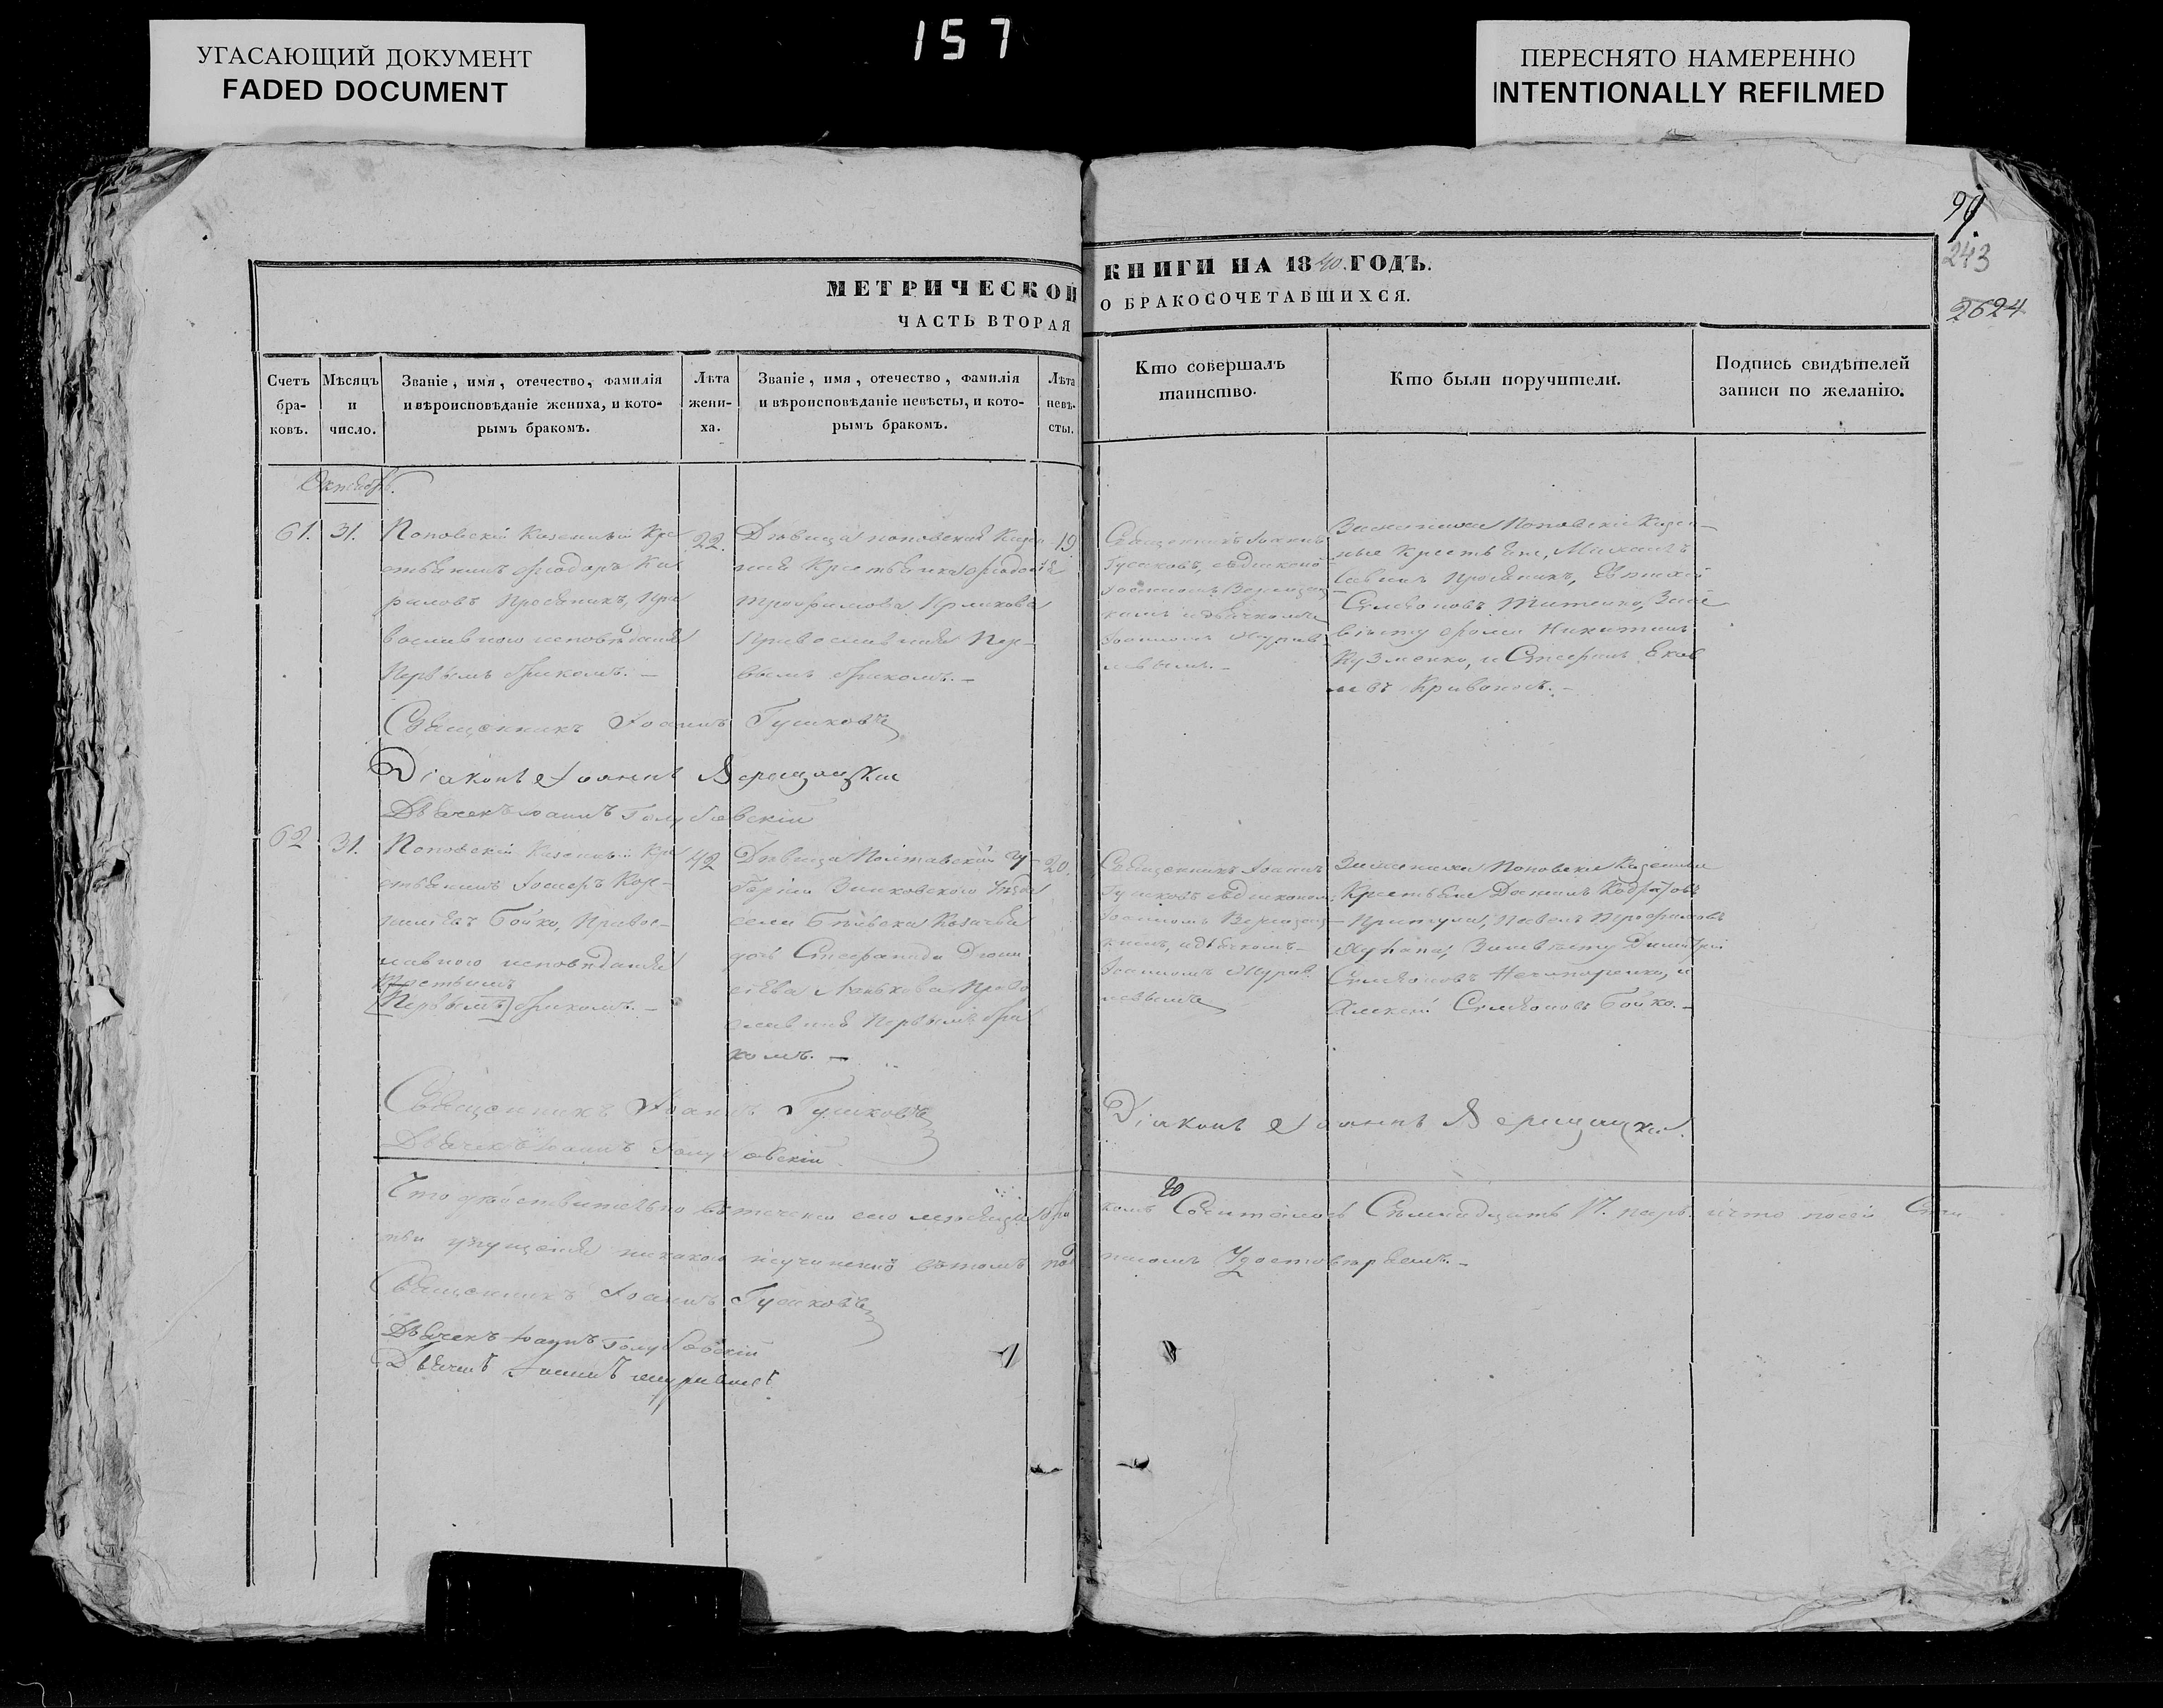 УГАСАЮЩИЙ ДОКУМЕНТ
FADED DOCUMENT
157
ПЕРЕСНЯТО НАМЕРЕННО
INTENTIONALLY REFILMED
243
2624
МЕТРИЧЕСКОЙ КНИГИ НА 1840. ГОДЪ.
ЧАСТЬ ВТОРАЯ О БРАКОСОЧЕТАВШИХСЯ.
Счетъ
бра-
ковъ.
Мѣсяцъ
и
число.
Званіе, имя, отечество, фамилія
и вѣроисповѣданіе жениха, и кото-
рымъ бракомъ.
Лѣта
жени-
ха.
Званіе, имя, отечество, фамилія
и вѣроисповѣданіе невѣсты, и кото-
рымъ бракомъ.
Лѣта
невѣ-
сты.
Кто совершалъ
таинство.
Кто были поручители.
Подпись свидѣтелей
записи по желанію.
Октябрь.
61.
31.
Поповскій Казенный Кре
стьянинъ Феодоръ Ки
риловъ Просяникъ, Пра
вославного исповѣданія
Первымъ бракомъ. —
22.
Дѣвица поповская Казен
ная Крестьянка Феодосія
Трофимова
Православная Пер-
вымъ бракомъ. —
19
Священникъ Іоаннъ
Гусаковъ, съ діакономъ
Іоанномъ Верещац-
кимъ и дьячкомъ
Іоанномъ Журав
левымъ. —
За жениха Поповскіе Казен-
ные Крестьяне, Михаилъ
Савинъ Просяникъ, Евтихій
Симеоновъ Титенко, За не
вѣсту Фома Никитинъ
Кузменко, и Стефанъ Яков
левъ Кривонос. —
Священникъ Іоаннъ Гусаковъ
Діаконъ Іоаннъ Верещацкій
Дьячекъ Іоаннъ Голубовскій
62
31.
Поповскій Казенный Кре
стьянинъ Іосифъ
Бойко, Правос-
лавного исповѣданія
Третьимъ
[Первымъ] бракомъ. —
42
Дѣвица Полтавской Гу-
берніи Зинковского Уѣзда
села Козачья
дочь Стефанида
Право
славная Первымъ бра
комъ. —
20.
Священникъ Іоаннъ
Гусаковъ съ діакономъ
Іоанномъ Верещац-
кимъ, и дьячкомъ —
Іоанномъ Журав
левымъ
За жениха Поповскіе Казенные
Крестьяне Даніилъ
Притула, Павелъ Трофимовъ
За невѣсту Димитрій
Симеоновъ Нечипоренко, и
Алексій Симеоновъ Бойко. —
Священникъ Іоаннъ Гусаковъ
Дьячекъ Іоаннъ Голубовскій
Діаконъ Іоаннъ Верещацкій.
Что дѣйствительно въ теченіи сего мѣсяца бра комъ Сочеталось Съмнадцать 17. паръ и что по сей Ста-
тьи упущенія никакого неучинено въ томъ под писомъ Удостовѣряемъ. —
Священникъ Іоаннъ Гусаковъ
Дьячекъ Іоаннъ Голубовскій
Дьячекъ Іоаннъ Журавлевъ